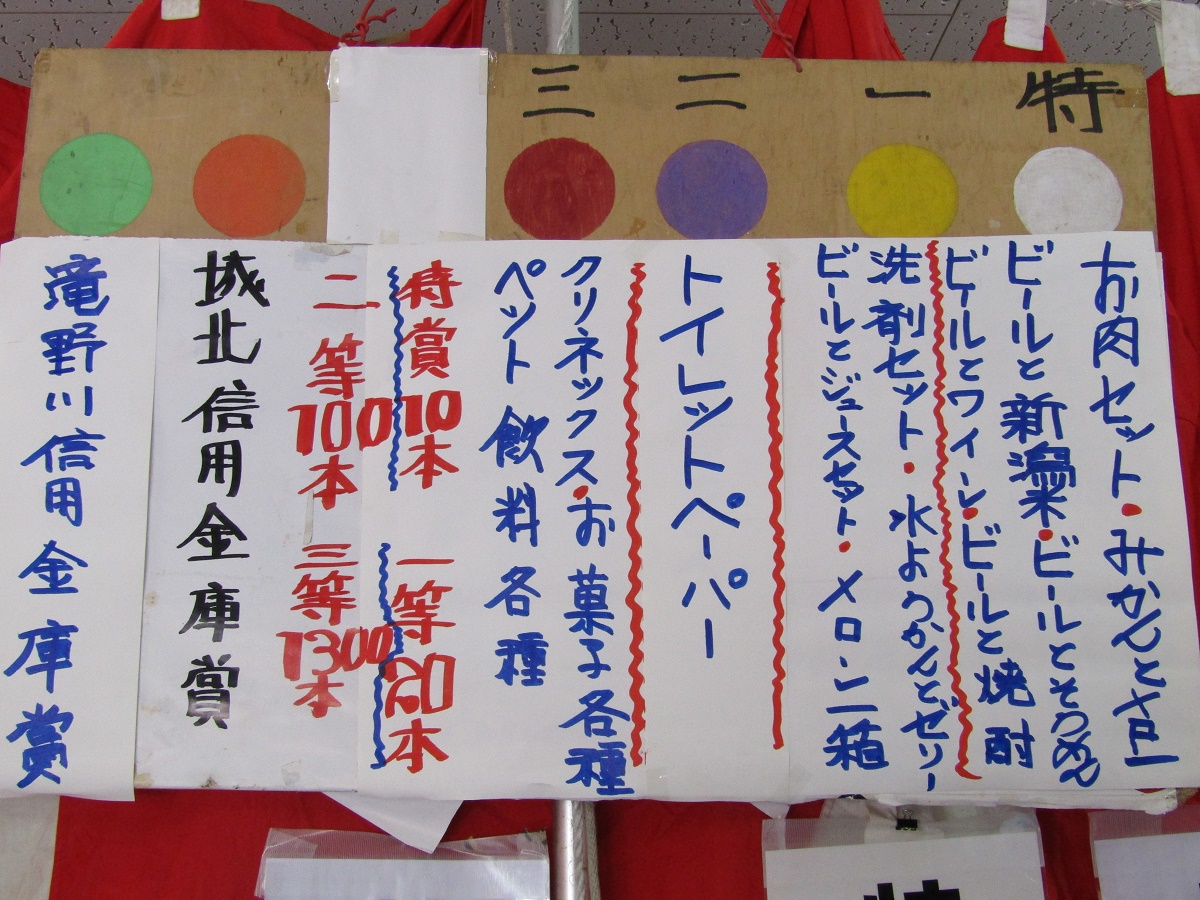 特
一
二
三
お肉セット・みかんとメロン
ビールと新潟米・ビールとそうめん
ビールとワイン・ビールと焼酎
洗剤セット・水ようかんとゼリー
ビールとジュースセット・メロン二箱
トイレットペーパー
クリネックス・お菓子各種
ペット飲料各種
特賞10本
一等60本
二等100本
三等1300本
城北信用金庫賞
滝野川信用金庫賞